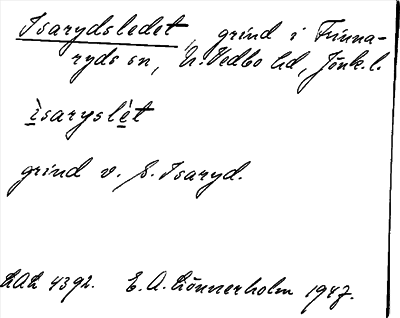 Isarydsledet, grind i Finna-
ryds sn, N. Vedbo hd, Jönk. l.
ìsaryslèt
grind v. S. Isaryd.
LAL 4392. E. A. Lönnerholm 1947.